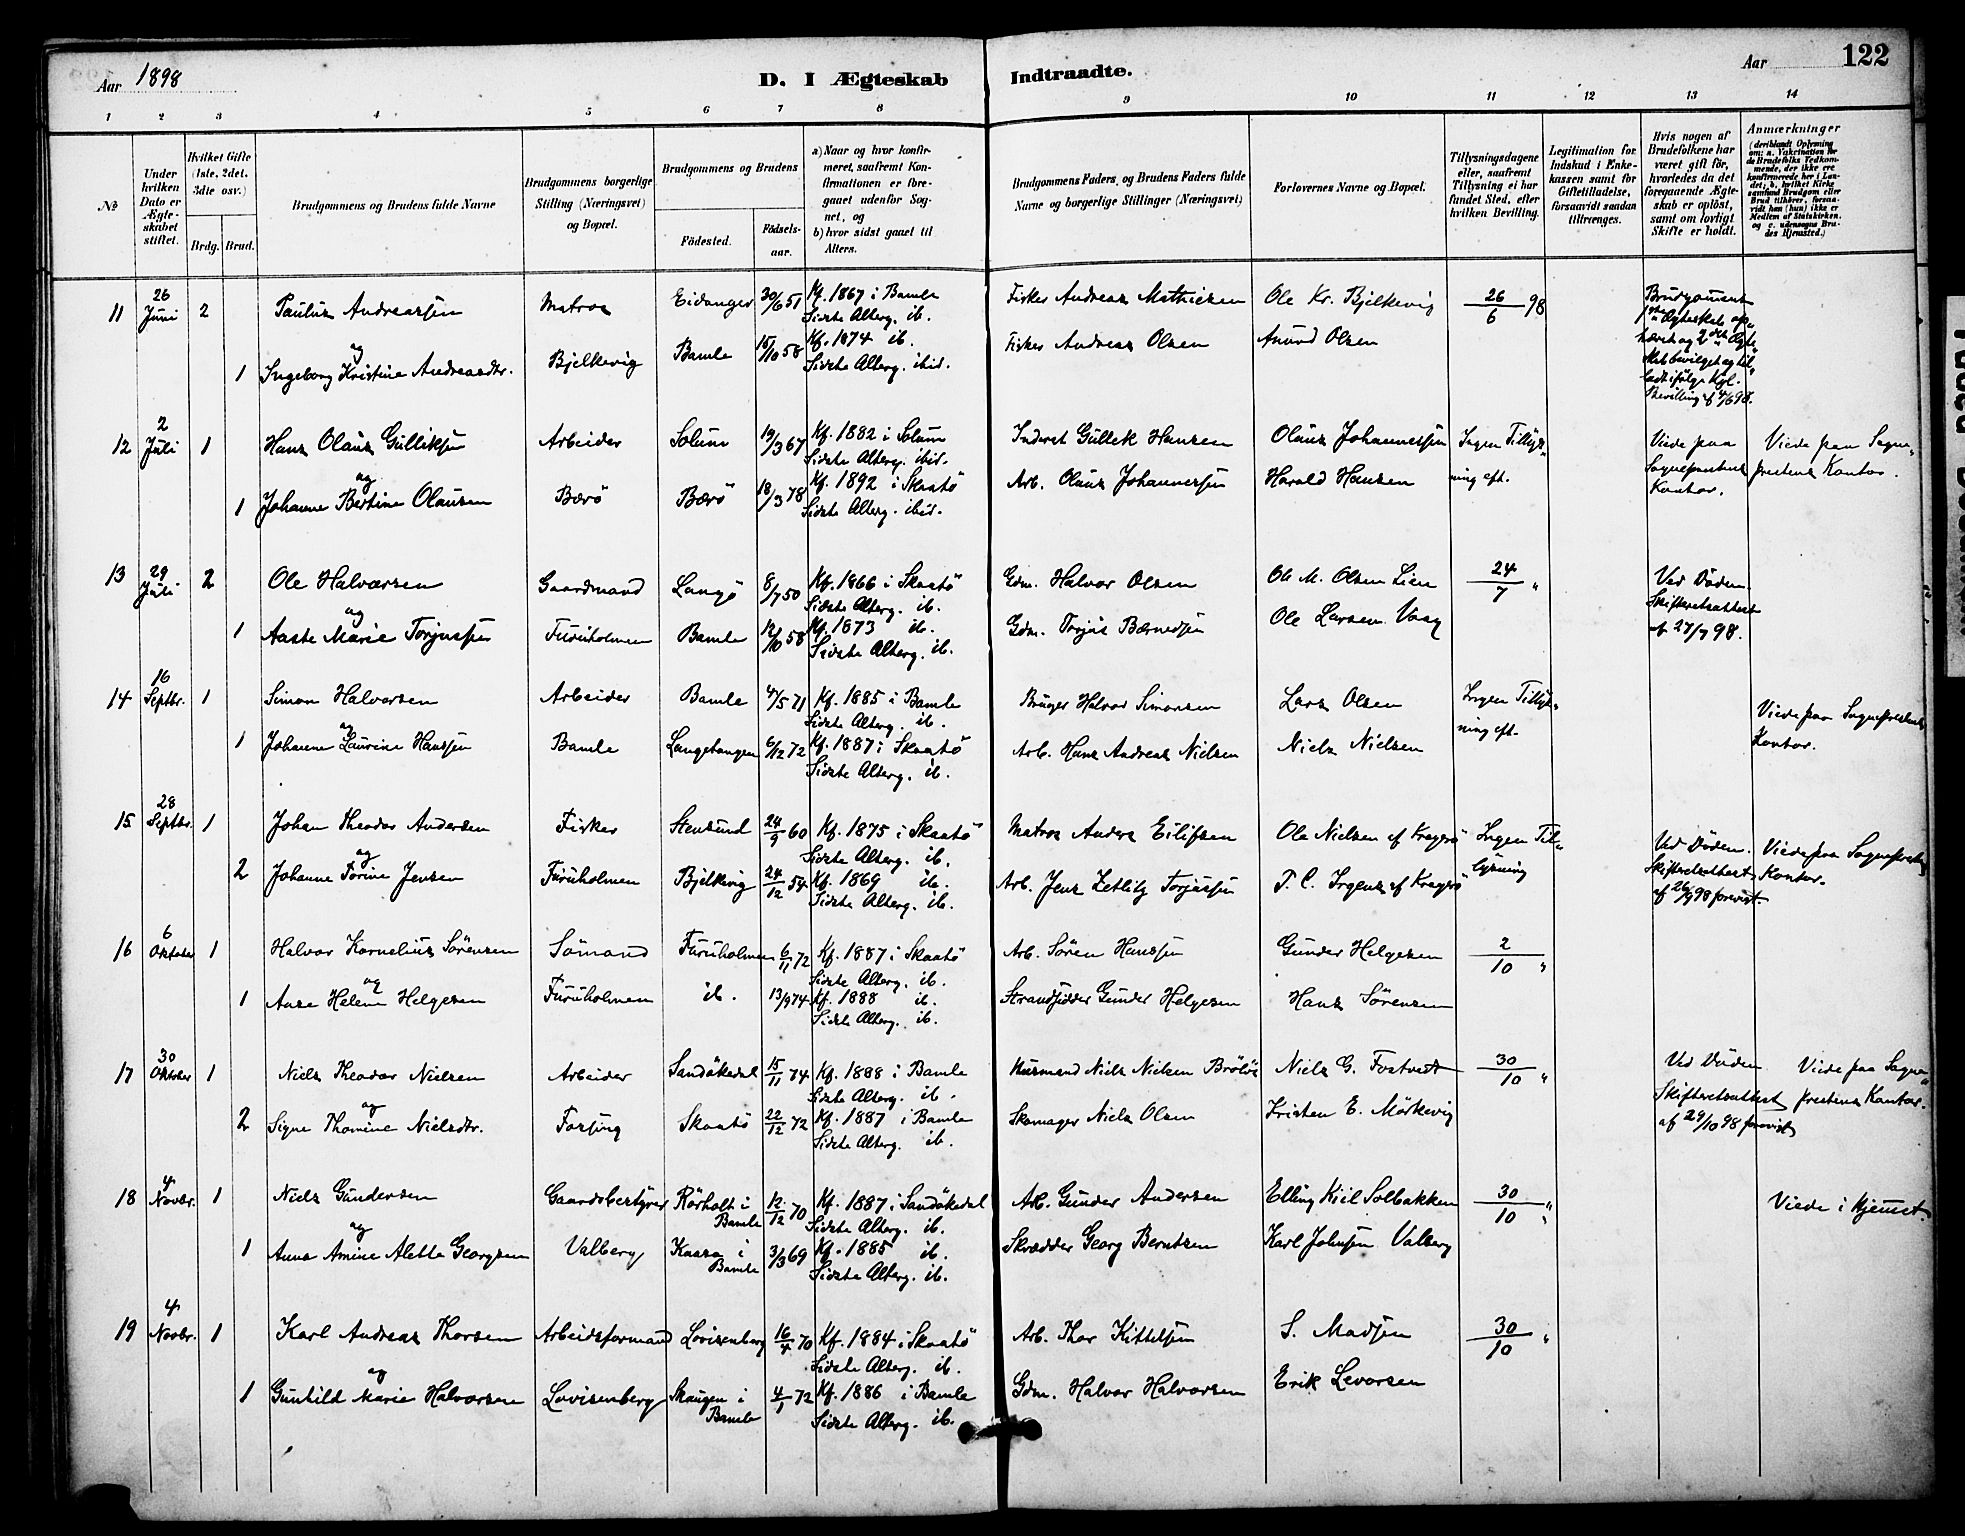 Aar 1898
D. I Ægteskab Indtraadte.
Aar 122
1 2 3 4 5 6 7 8 9 10 11 12 13 14
№
Under hvilken Dato er Ægteskabet stiftet.
Hvilket Gifte (1ste, 2det, 3die osv.)
Brdg. Brud.
Brudgommens og Brudens fulde Navne
Brudgommens borgerlige Stilling (Næringsvei) og Bopæl.
Brudgommens og Brudens
Födested. Födselsaar.
a) Naar og hvor konfirmeret, saafremt Konfirmationen er foregaaet udenfor Sognet, og
b) hvor sidst gaaet til Alters.
Brudgommens Faders, og Brudens Faders fulde Navne og borgerlige Stillinger (Næringsvei)
Forlovernes Navne og Bopæl.
Tillysningsdagene eller, saafremt Tillysning ei har fundet Sted, efter hvilken Bevilling.
Legitimation for Indskud i Enkekassen samt for Giftetilladelse, forsaavidt saadan tiltrænges.
Hvis nogen af Brudefolkene har været gift før, hvorledes da det foregaaende Ægteskab er oplöst, samt om lovligt Skifte er holdt.
Anmærkninger
(deriblandt Oplysning om: a. Vakcination for de Brudefolks Vedkommende, der ikke ere konfirmerede her i Landet; b. hvilket Kirkesamfund Brudgom eller Brud tilhører, forsaavidt han (hun) ikke er Medlem af Statskirken. og c. udensogns Brudes Hjemsted.)
11 26 Juni 2 Paulus Andreassen Matros Eidanger 30/6 51 Kf. 1867 i Bamle Fisker Andreas Mathiesen Ole Kr. Bjelkevig 26/6 98
Sidste Alterg. ib.
og
1 Ingeborg Kristine Andreasdtr. Bjelkevig Bamle 15/10 58 Kf. 1874 ib. Fisker Andreas Olsen Anund Olsen
Sidste Alterg. ibid.
Brudgommens
1ste Ægteskab op-
hævet og 2det Ægte-
skab bevilget og til-
ladt ifölge Kgl.
Bevilling af 4/6 98.
12 2 Juli 1 Hans Olaus Gulliksen Arbeider Solum 19/3 67 Kf. 1882 i Solum Inderst Gullek Hansen Olaus Johannessen Ingen Tillys- Viede paa Viede paa Sogne-
Sidste Alterg. ibid.
og
1 Johanne Bertine Olausen Berö Berö 18/3 78 Kf. 1892 i Skaatö Arb. Olaus Johannessen Harald Hansen ning eft. Sogneprestens prestens Kontor.
Sidste Alterg. ibid. Kontor.
13 29 Juli 2 Ole Halvorsen Gaardmand Langö 8/7 50 Kf. 1866 i Skaatö Gdm. Halvor Olsen Ole M. Olsen Lien 24/7 " Ved Döden
Sidste Alterg. ib. Skifteretsattest
og
1 Aaste Marie Torjussen Furuholmen Bamle 12/10 58 Kf. 1873 ib. Gdm. Torjus Bernedsen Ole Larsen Vaag af 27/7 98.
Sidste Alterg. ib.
14 16 Septbr. 1 Simon Halvorsen Arbeider Bamle 4/5 71 Kf. 1885 i Bamle Bruger Halvor Simonsen Lars Olsen Ingen Tillys- Viede paa Sogneprestens
Sidste Alterg. ib.
og
1 Johanne Laurine Hanssen Bamle Langetangen 6/12 72 Kf. 1887 i Skaatö Arb. Hans Andreas Nielsen Niels Nielsen ning eft. Kontor.
Sidste Alterg. ib.
15 28 Septbr. 1 Johan Theodor Andersen Fisker Stensund 24/9 60 Kf. 1875 i Skaatö Matros Anders Eilifsen Ole Nielsen af Kragerö Ingen Til- Ved Döden. Viede paa Sogneprestens
Sidste Alterg. ib.
og
2 Johanne Torine Jensen Furuholmen Bjelkvig 24/12 54 Kf. 1869 ib. Arb. Jens Zetlitz Torjussen T. C. Irgens af Kragerö lysning Skifteretsattest Kontor.
Sidste Alterg. ib. af 26/9 98 forevist
16 6 Oktober 1 Halvor Kornelius Sörensen Sömand Furuholmen 6/11 72 Kf. 1887 i Skaatö Arb. Sören Hanssen Gunder Helgesen 2/10 "
Sidste Alterg. ib.
og
1 Anne Helene Helgesen Furuholmen ib. 13/9 74 Kf. 1888 ib. Strandsidder Gunder Helgesen Hans Sörensen
Sidste Alterg. ib.
17 30 Oktober 1 Niels Theodor Nielsen Arbeider Sandökedal 15/11 74 Kf. 1888 i Bamle Husmand Niels Nielsen Brölös Niels G. Fostvedt 30/10 " Ved Döden Viede paa Sogne-
Sidste Alterg. ib.
og
2 Signe Thomine Nielsdtr. Fossing Skaatö 22/12 72 Kf. 1887 i Bamle Skomager Niels Olsen Kristen E. Mörkevig Skifteretsattest prestens Kontor.
Sidste Alterg. ib. af 29/10 98 forevist
18 4 Novbr. 1 Niels Gundersen Gaardsbestyrer Rörholt i Bamle 12/12 70 Kf. 1887 i Sandökedal Arb. Gunder Andersen Elling Kiil Solbakken 30/10 " Viede i Hjemmet.
Sidste Alterg. ib.
og
1 Anna Amine Aletta Georgsen Valberg Kaasa i Bamle 3/3 69 Kf. 1885 ib. Skrædder Georg Berntsen Karl Johnsen Valberg
Sidste Alterg. ib.
19 4 Novbr. 1 Karl Andreas Thorsen Arbeidsformand Lovisenberg 16/4 70 Kf. 1884 i Skaatö Arb. Thor Kittelsen S. Madsen 30/10 "
Sidste Alterg. ib.
og
1 Gunhild Marie Halvorsen Lovisenberg Skaugen i Bamle 4/1 72 Kf. 1886 i Bamle Gdm. Halvor Halvorsen Erik Levorsen
Sidste Alterg. ib.